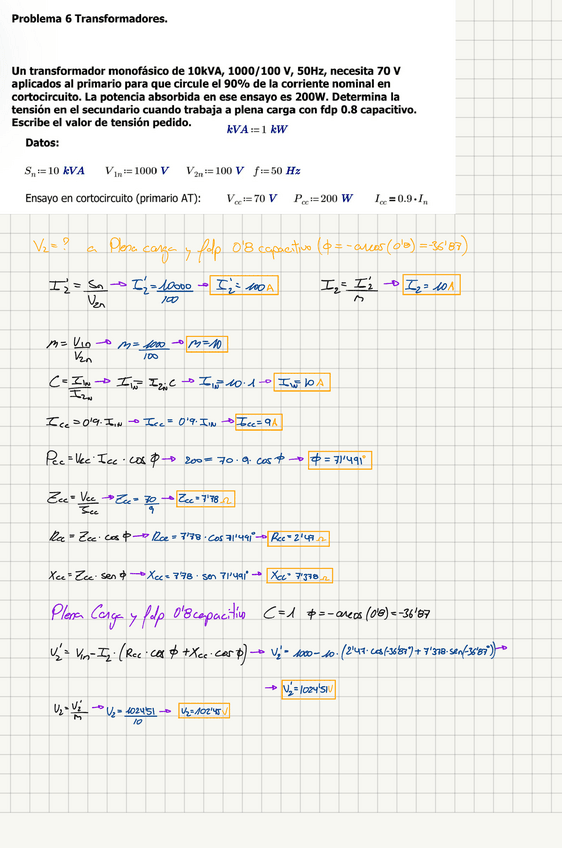 Problema 6 Transformadores.
Un transformador monofásico de 10kVA, 1000/100 V, 50Hz, necesita 70 V
aplicados al primario para que circule el 90% de la corriente nominal en
cortocircuito. La potencia absorbida en ese ensayo es 200W. Determina la
tensión en el secundario cuando trabaja a plena carga con fdp 0.8 capacitivo.
Escribe el valor de tensión pedido.
kVA := 1 kW
Datos:
Sn := 10 kVA V1n := 1000 V V2n := 100 V f := 50 Hz
Ensayo en cortocircuito (primario AT): Vcc := 70 V Pcc := 200 W Icc = 0.9 · In
V2 = ? a Plena carga y fdp 0'8 capacitivo (ϕ = -arcos(0'8) = -36'87)
I2' = Sn/V2n → I2' = 10000/100 → I2' = 100A I2 = I2'/m → I2 = 10A
m = V1n/V2n → m = 1000/100 → m = 10
C = I1N/I2N → I1N = I2N·C → I1N = 10·1 → I1N = 10A
Icc = 0'9·I1N → Icc = 0'9·I1N → Icc = 9A
Pcc = Vcc·Icc·cos ϕ → 200 = 70·9·cos ϕ → ϕ = 71'491°
Zcc = Vcc/Icc → Zcc = 70/9 → Zcc = 7'78 Ω
Rcc = Zcc·cos ϕ → Rcc = 7'78·cos 71'491° → Rcc = 2'47 Ω
Xcc = Zcc·sen ϕ → Xcc = 7'78·sen 71'491° → Xcc = 7'378 Ω
Plena Carga y fdp 0'8 capacitivo C = 1 ϕ = -arcos(0'8) = -36'87
V2' = V1n - I2·(Rcc·cos ϕ + Xcc·cos ϕ) → V2' = 1000 - 10·(2'47·cos(-36'87°) + 7'378·sen(-36'87°)) →
→ V2' = 1024'51V
V2 = V2'/m → V2 = 1024'51/10 → V2 = 102'45V